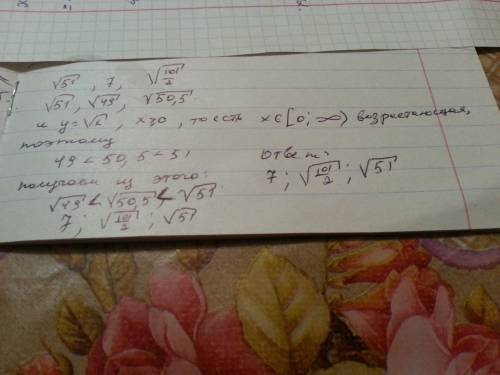 √51 , 7, √101/2
√51, √49, √50,5
и y=√x , x≥0 , то есть x∈[0;∞) возрастающая,
поэтому
49 < 50,5 < 51
получаем из этого:
√49 < √50,5 < √51
7; √101/2 ; √51
Ответ:
7; √101/2 ; √51